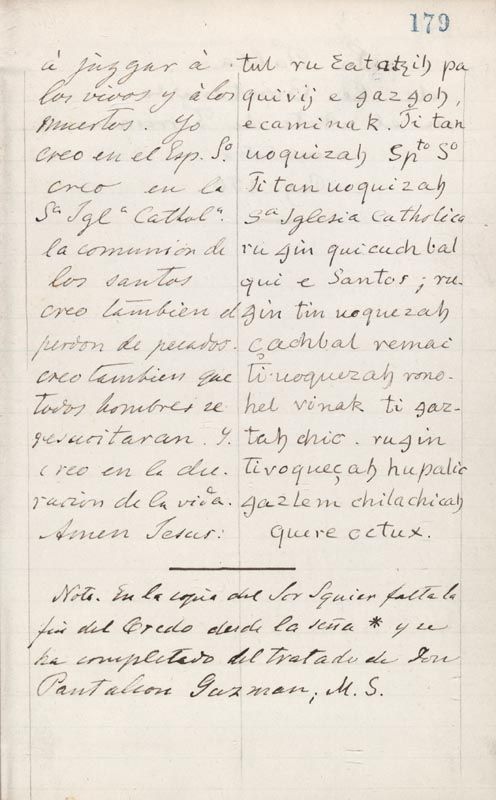 179
á juzgar á
los vivos y á los
muertos. Yo
creo en el Esp. Sº
creo en la
Sª Iglª Catholª.
la comunion de
los santos
creo tambien el
perdon de pecados.
creo tambien que
todos hombres se
resucitaran. Y.
creo en la du-
racion de la vida.
Amen Jesus:
tul ru Eatatzih pa
quivij e gazgoh,
ecaminak. Ti tan
uoquizah Spto Sº
Titan uoquizah
Sta Iglesia Catholica
ru gin quicuchbal
qui e Santos; ru-
gin tin uoquezah
çachbal remac
ti uoquezah rono-
hel vinak ti gaz-
tah chic. rugin
tivoqueçah hupalic
gazlem chilachicah
quere octux.
Nota. En la copia del Sor Squier falta la
fin del Credo desde la seña * y se
ha completado del tratado de Don
Pantaleon Guzman, M. S.